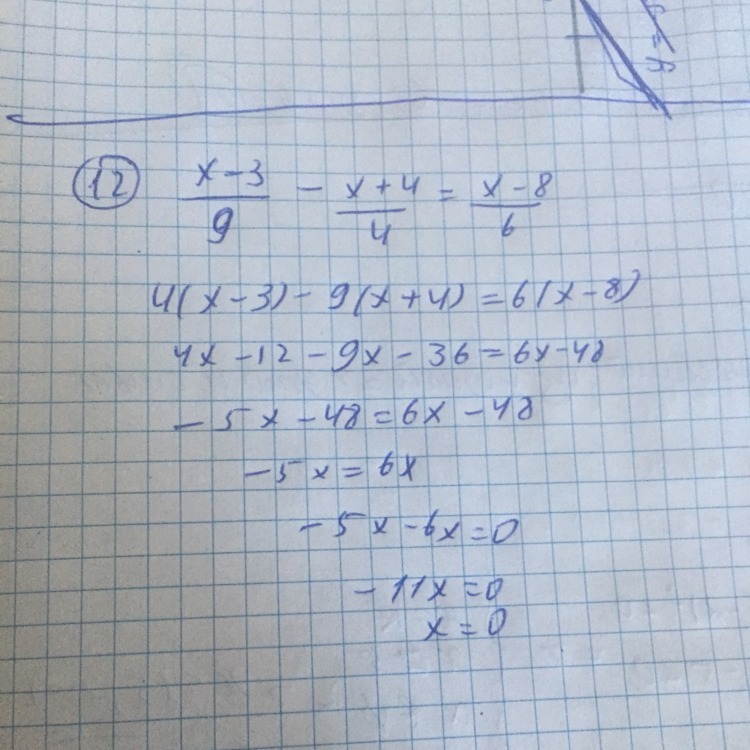 12 (x-3)/9 - (x+4)/4 = (x-8)/6
4(x-3)-9(x+4)=6(x-8)
4x-12-9x-36=6x-48
-5x-48=6x-48
-5x=6x
-5x-6x=0
-11x=0
x=0